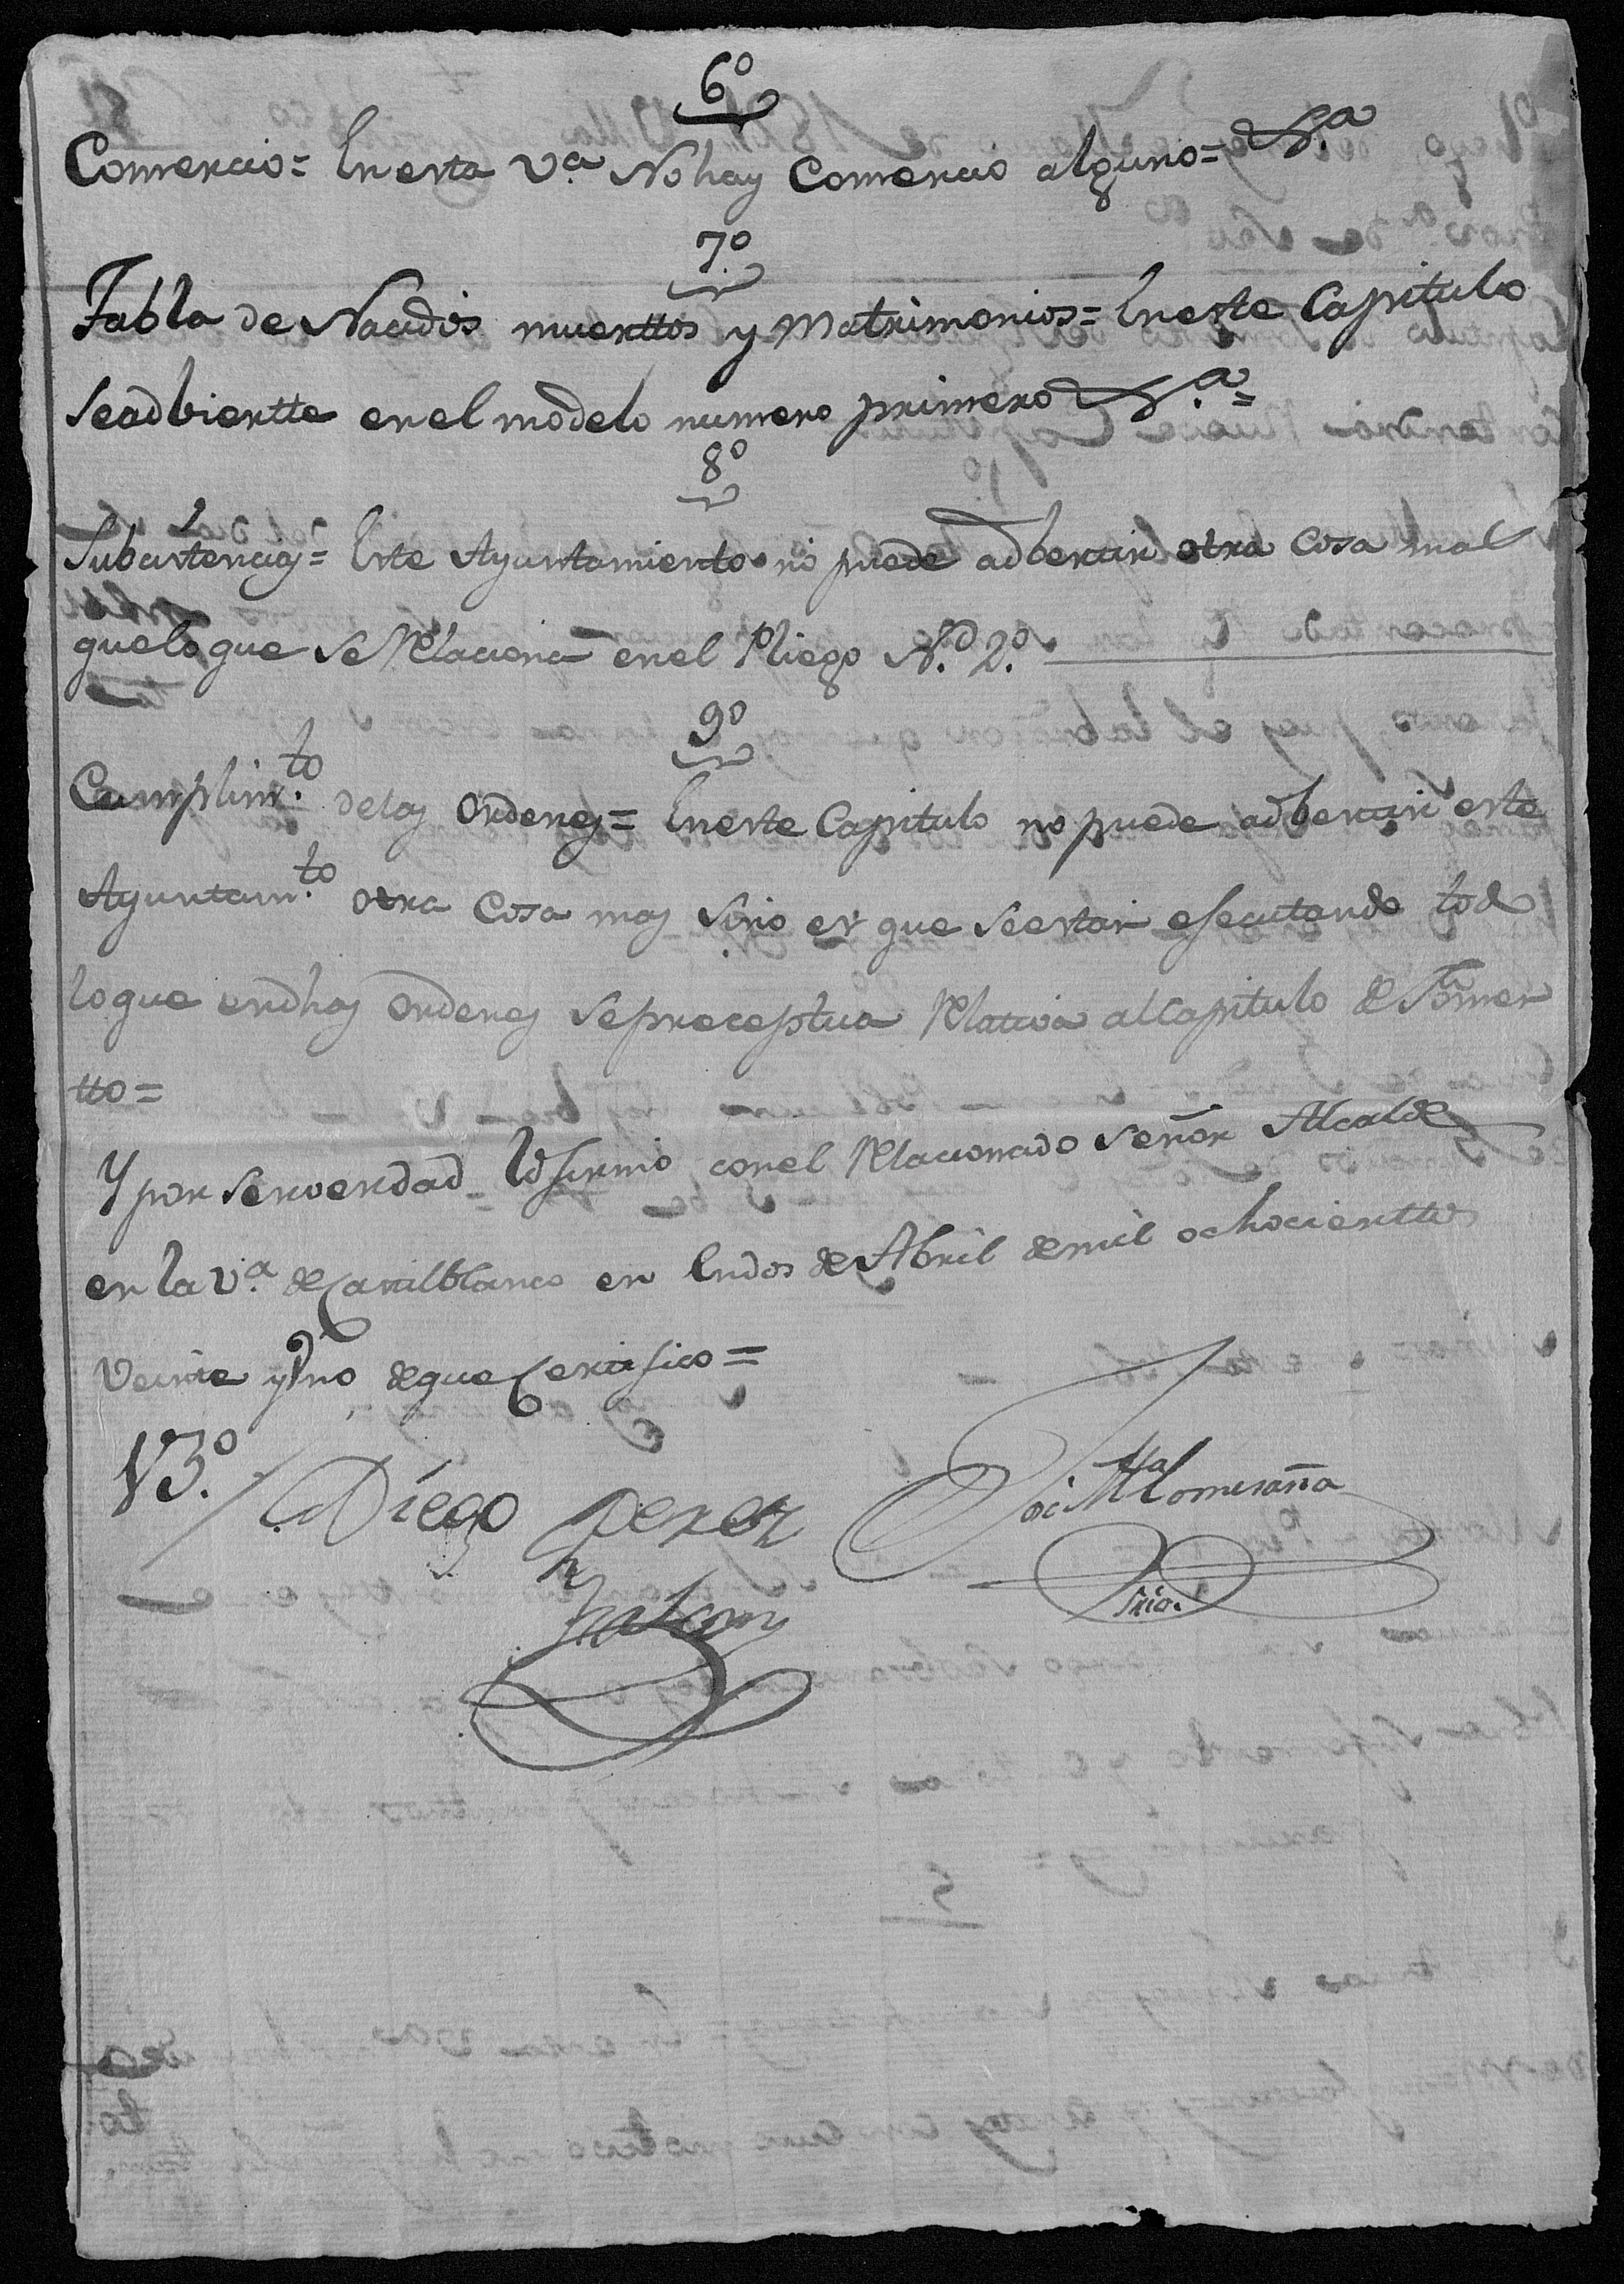 6º
Comercio = En esta v.ª No hay Comercio alguno =
7º
Tabla de Nacidos muerttos y Matrimonios = En este Capitulo
se adbiertte en el modelo numero primero
8º
Subcistencias = Este Ayuntamiento no puede adbertir otra cosa mas
que lo que se Relaciona en el Pliego N.º 2.º
9º
Cumplim.to de las Ordenes = En este Capitulo no puede adbertir este
Ayuntam.to otra Cosa mas sino es que se estan esecutando todo
lo que en dhas Ordenes se preceptua Relativa al Capitulo de Fomen
tto =
Y por ser verdad lo firmo con el Relacionado Señor Alcalde
en la v.ª de Carvilblanco en En dos de Abril de mil ochocienttos
Veinte y Uno de que Certifico =
VB.º Diego perez
Srio.